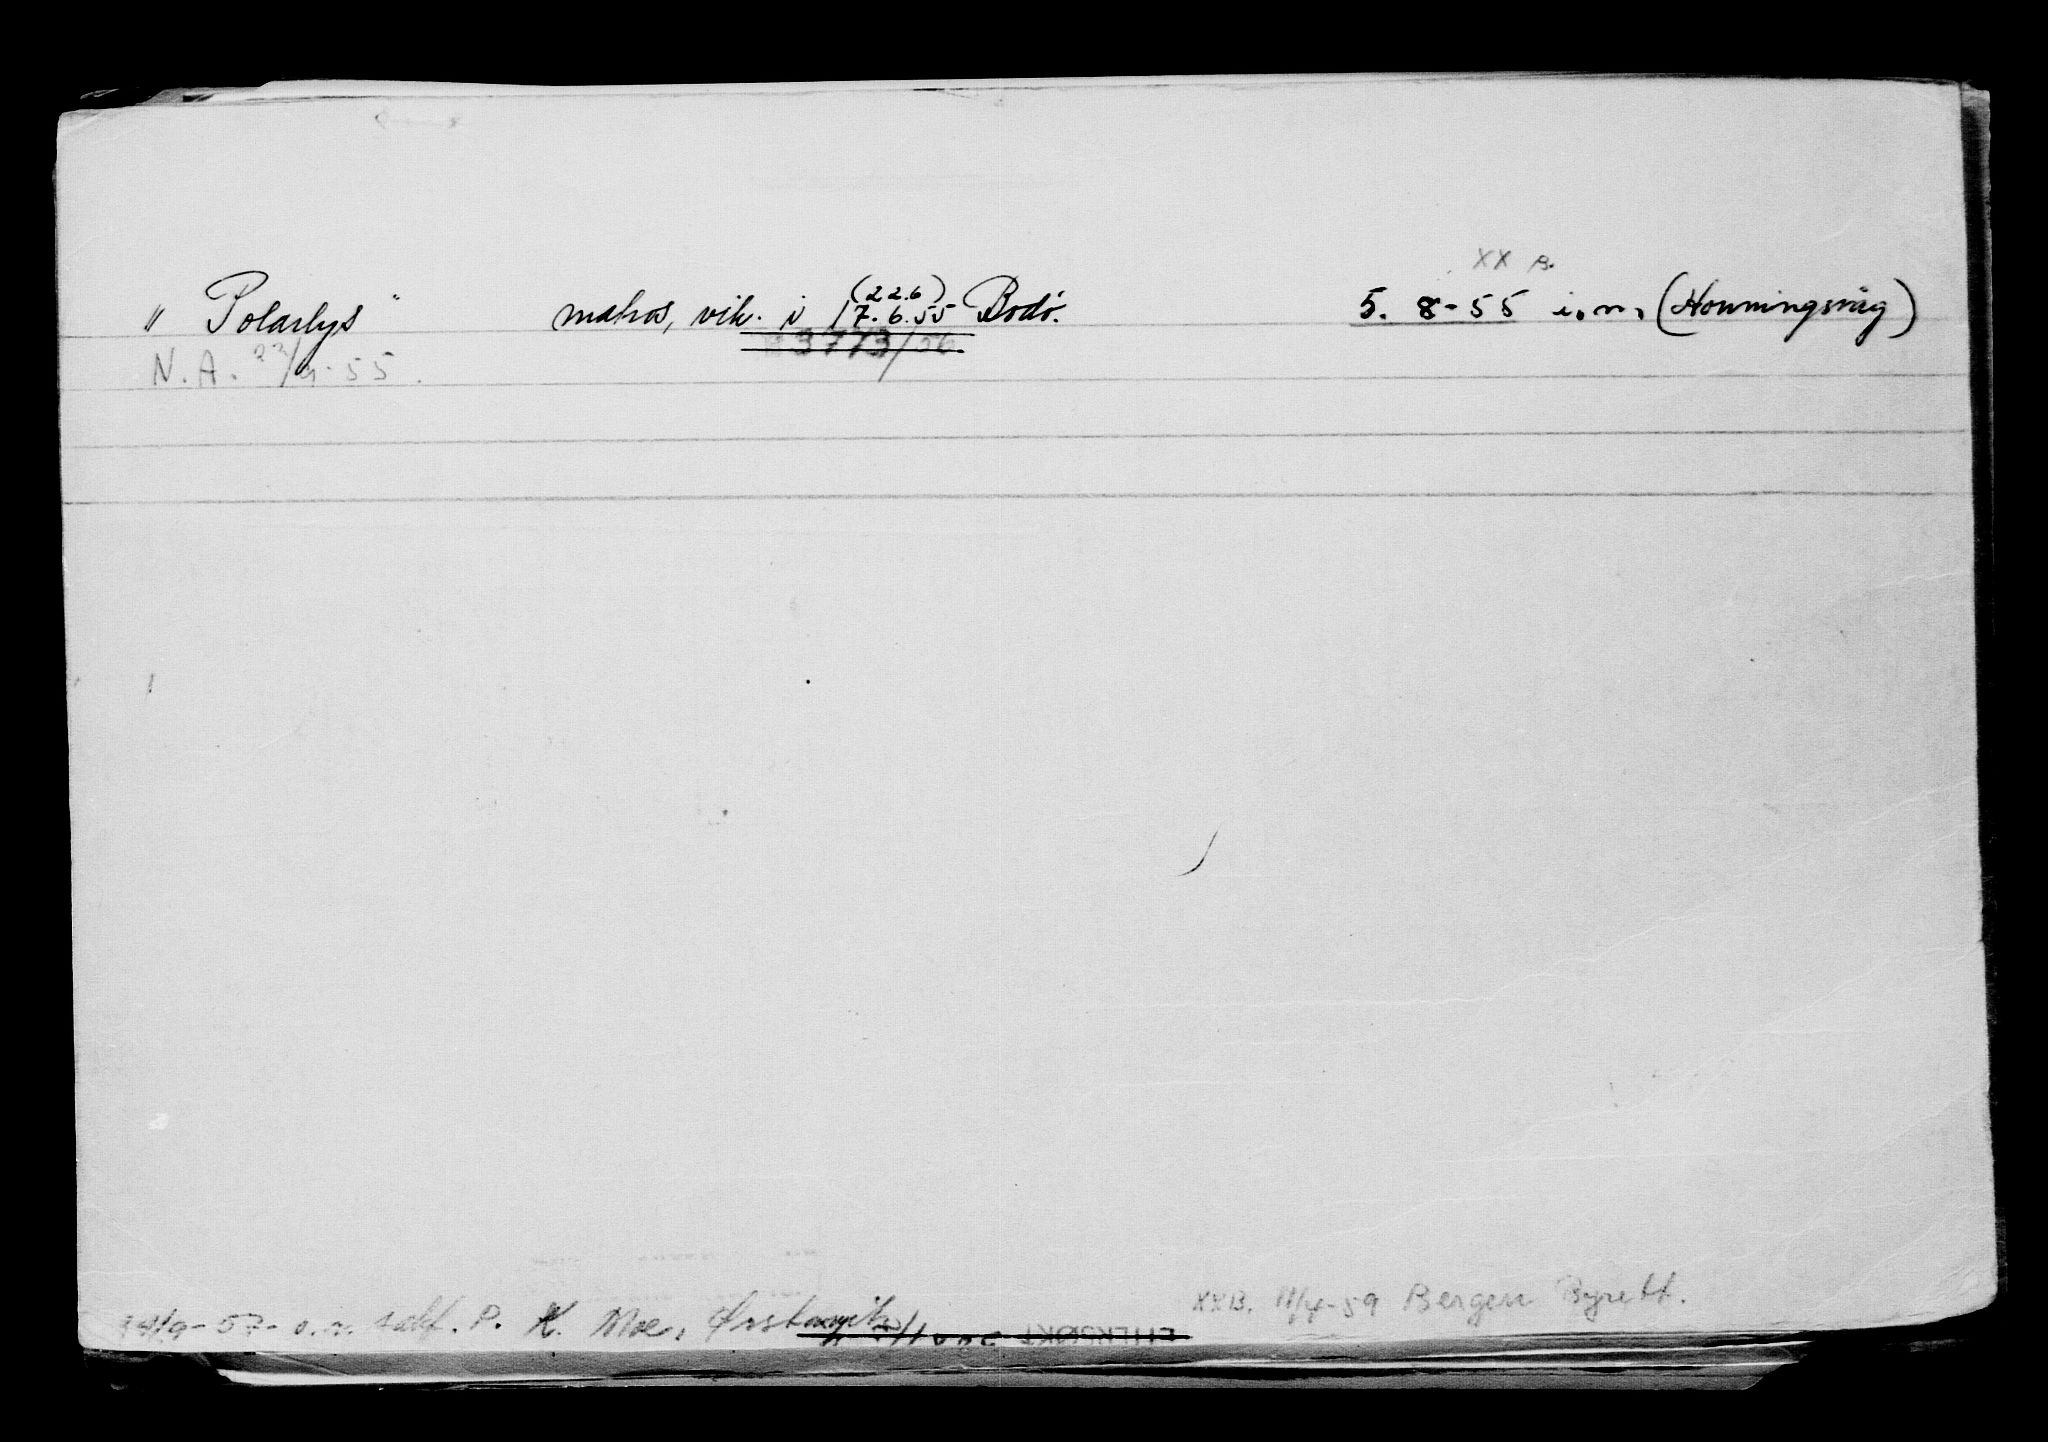 XX B.
" Polarlys " matros, vik. i 17.6.55 (22.6) Bodø. 5. 8-55 i.n. (Honningsvåg)
3773/56.
N.A. 22/9-55.
XXB. 11/4-59 Bergen Byrett.
9-57- o.n. P. K. Moe, Ørstavik
EFTERSØKT